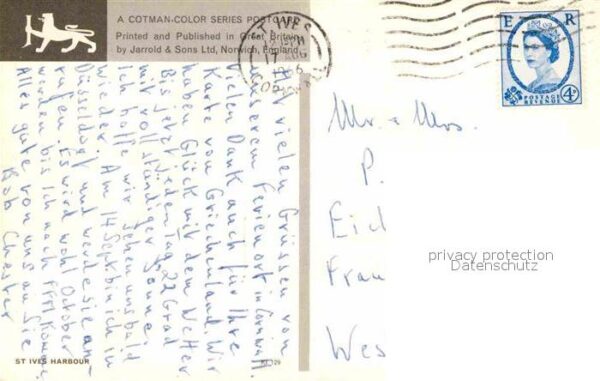 A COTMAN-COLOR SERIES POSTCARD
Printed and Published in Great Britain
by Jarrold & Sons Ltd, Norwich, England
ST IVES
17 AUG
E R
POSTAGE
REVENUE
4D
Mit vielen Grüssen von
unserem Ferienort in Cornwall.
Vielen Dank auch für Ihre
Karte von Griechenland. Wir
haben Glück mit dem Wetter
Bis jetzt jeden Tag 22 Grad
mit vollständiger Sonne
Ich hoffe wir sehen uns bald
wieder. Am 14 Sept. bin ich in
Düsseldorf und werde sie an-
rufen. Es wird wohl October
werden bis ich nach FFM komme.
Alles gute von uns an Sie
Bob Chester
Mr. & Mrs.
P.
Eid
Frau
Wes
privacy protection
Datenschutz
ST IVES HARBOUR